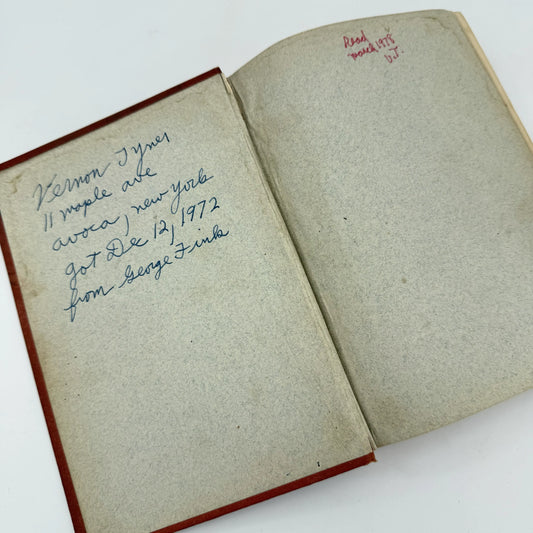 Vernon Tyner
11 maple ave
avoca, new york
got Dec 12, 1972
from George Fink
Read
march 1978
V.T.